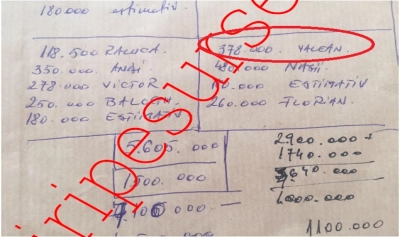 180000 estimativ
118.500 RALUCA.
350.000. ANDI
278.000 VICTOR
250.000 BALCAN.
180.000 ESTIMATIV
378.000. VALCAN.
480.000 NASII.
000 ESTIMATIV
260.000 FLORIAN.
5.605.000
1.500.000
7.105 000
2900.000
1740.000
640.000
1000.000
1100000
ripesurse